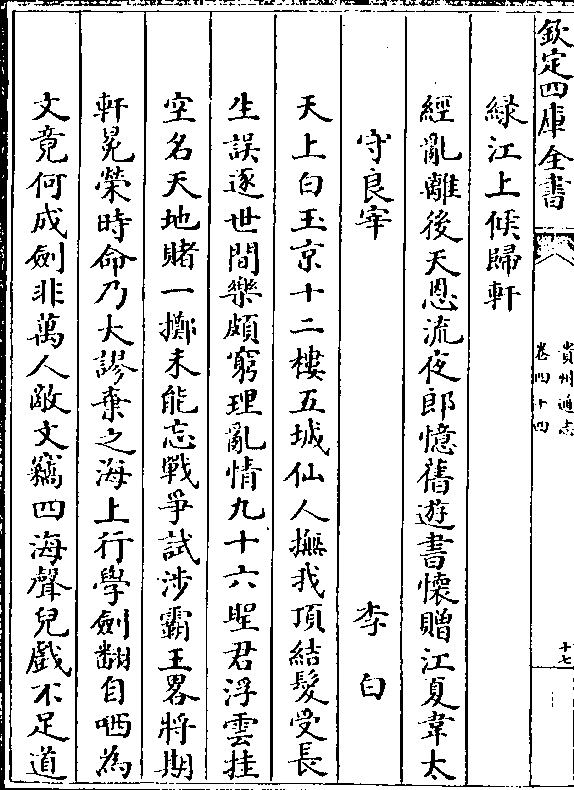 欽定四庫全書
貴州通志
卷四十四
十七
綠江上候歸軒
經亂離後天恩流夜郎憶舊遊書懷贈江夏韋太
守良宰 李白
天上白玉京十二樓五城仙人撫我頂結髮受長
生誤逐世間樂頗窮理亂情九十六聖君浮雲挂
空名天地賭一擲未能忘戰爭試涉霸王畧將期
軒冕榮時命乃大謬棄之海上行學劍翻自哂為
文竟何成劍非萬人敵文竊四海聲兒戲不足道